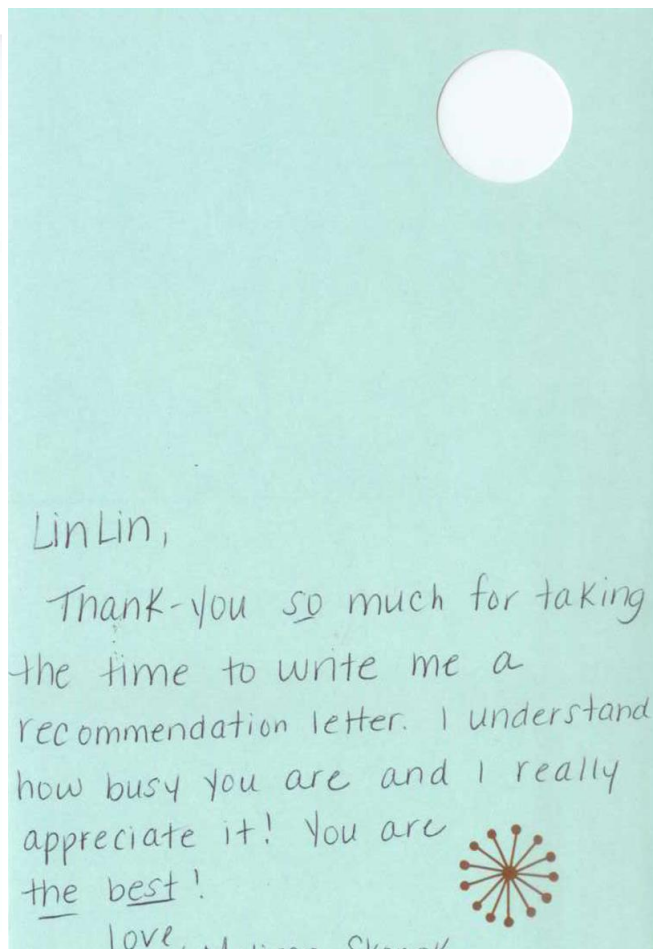 LinLin,
Thank-you so much for taking
the time to write me a
recommendation letter. I understand
how busy you are and I really
appreciate it! You are
the best!
love,